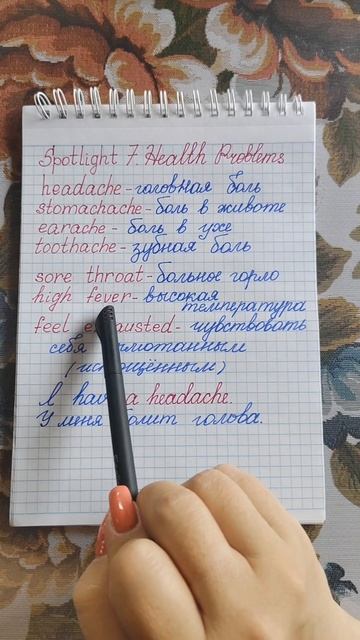 Spotlight 7. Health Problems
headache-головная боль
stomachache-боль в животе
earache - боль в ухе
toothache-зубная боль
sore throat-больное горло
high fever-высокая
температура
feel - чувствовать
себя
I a headache.
У меня голова.